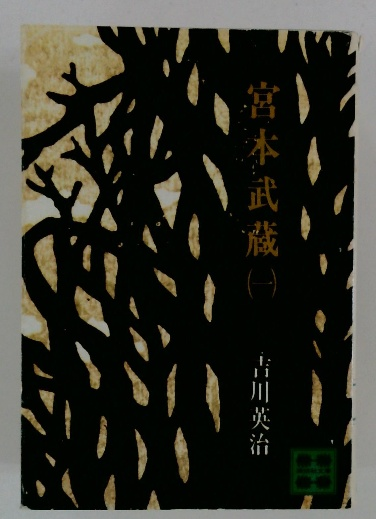 宮本武蔵(一)
吉川英治